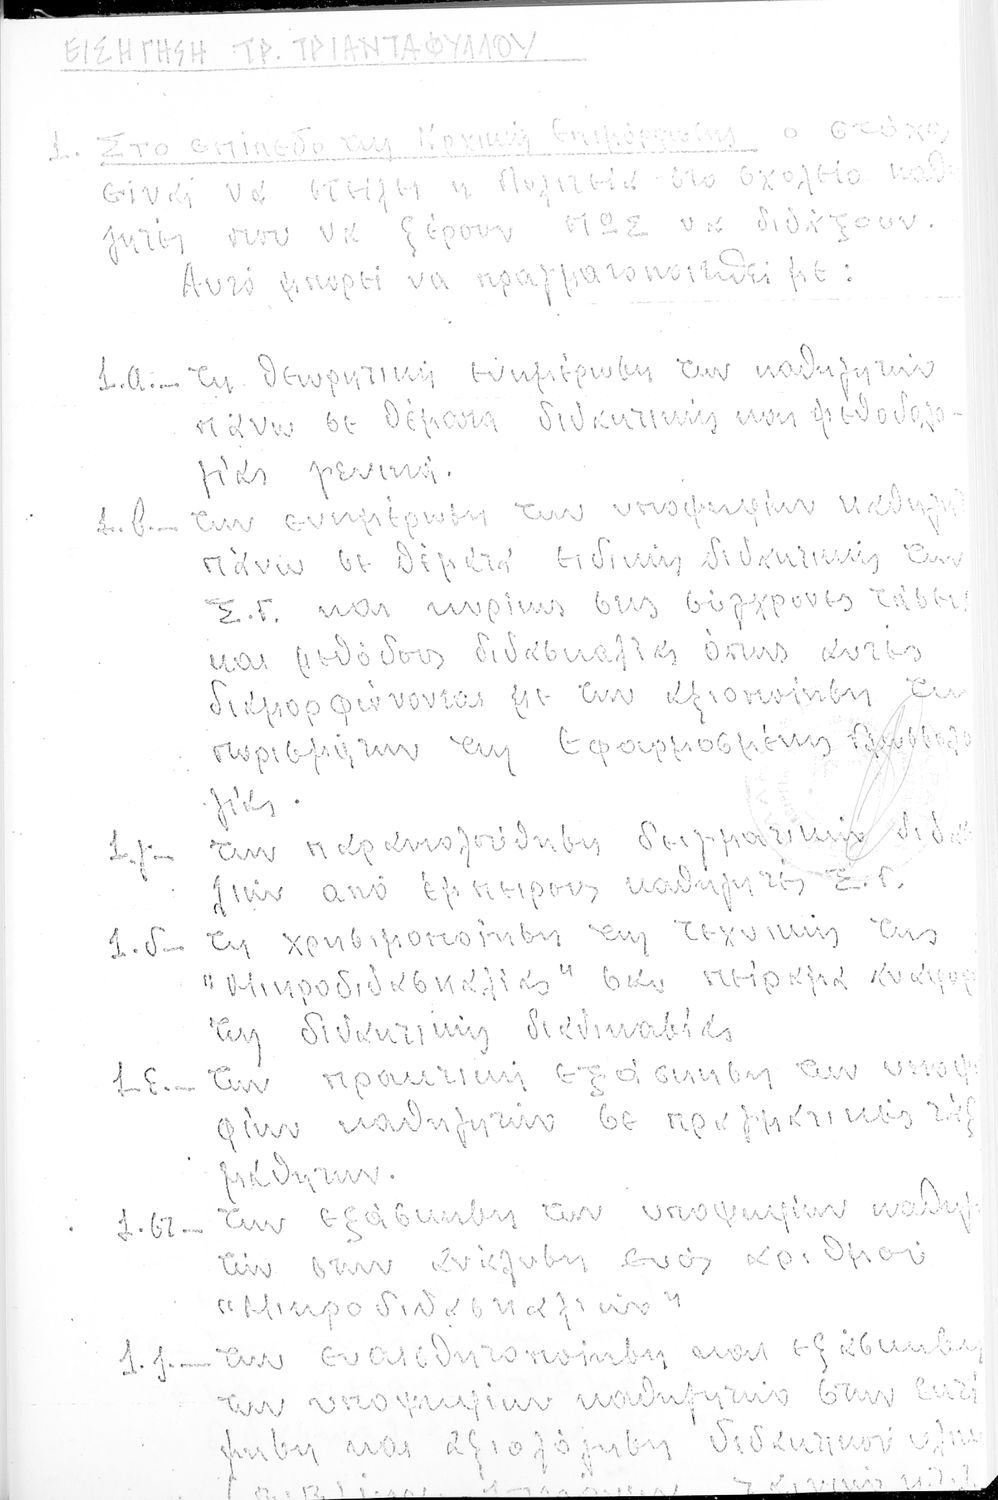 ΕΙΣΗΓΗΣΗ ΤΡ. ΤΡΙΑΝΤΑΦΥΛΛΟΥ
1. Στο επίπεδο της Αρχικής Επιμόρφωσης ο στόχος
είναι να στείλει η Πολιτεία στο σχολείο καθ
γητές που να ξέρουν ΠΩΣ να διδάξουν.
Αυτό μπορεί να πραγματοποιηθεί με:
1.α.– τη θεωρητική ενημέρωση των καθηγητών
πάνω σε θέματα διδακτικής και μεθοδολο-
γίας γενικά.
1.β.– την ενημέρωση των υποψηφίων καθηγη
πάνω σε θέματα ειδικής διδακτικής των
Ξ.Γ. και κυρίως στις σύγχρονες τάσεις
και μεθόδους διδασκαλίας όπως αυτές
διαμορφώνονται με την αξιοποίηση των
πορισμάτων της Εφαρμοσμένης Γλωσσολο
γίας.
1.γ– την παρακολούθηση δειγματικών διδασ
λιών από έμπειρους καθηγητές Ξ.Γ.
1.δ– τη χρησιμοποίηση της τεχνικής της
"Μικροδιδασκαλίας" σαν πείραμα
της διδακτικής διαδικασίας
1.ε.– την πρακτική εξάσκηση των υποψη
φίων καθηγητών σε πραγματικές τάξ
μαθητών.
1.στ.– την εξάσκηση των υποψηφίων καθηγη
τών στην ανάλυση ενός αριθμού
"Μικροδιδασκαλιών"
1.ζ.– την ευαισθητοποίηση και εξάσκηση
των υποψηφίων καθηγητών στην εκτί
μηση και αξιολόγηση διδακτικού υλικ